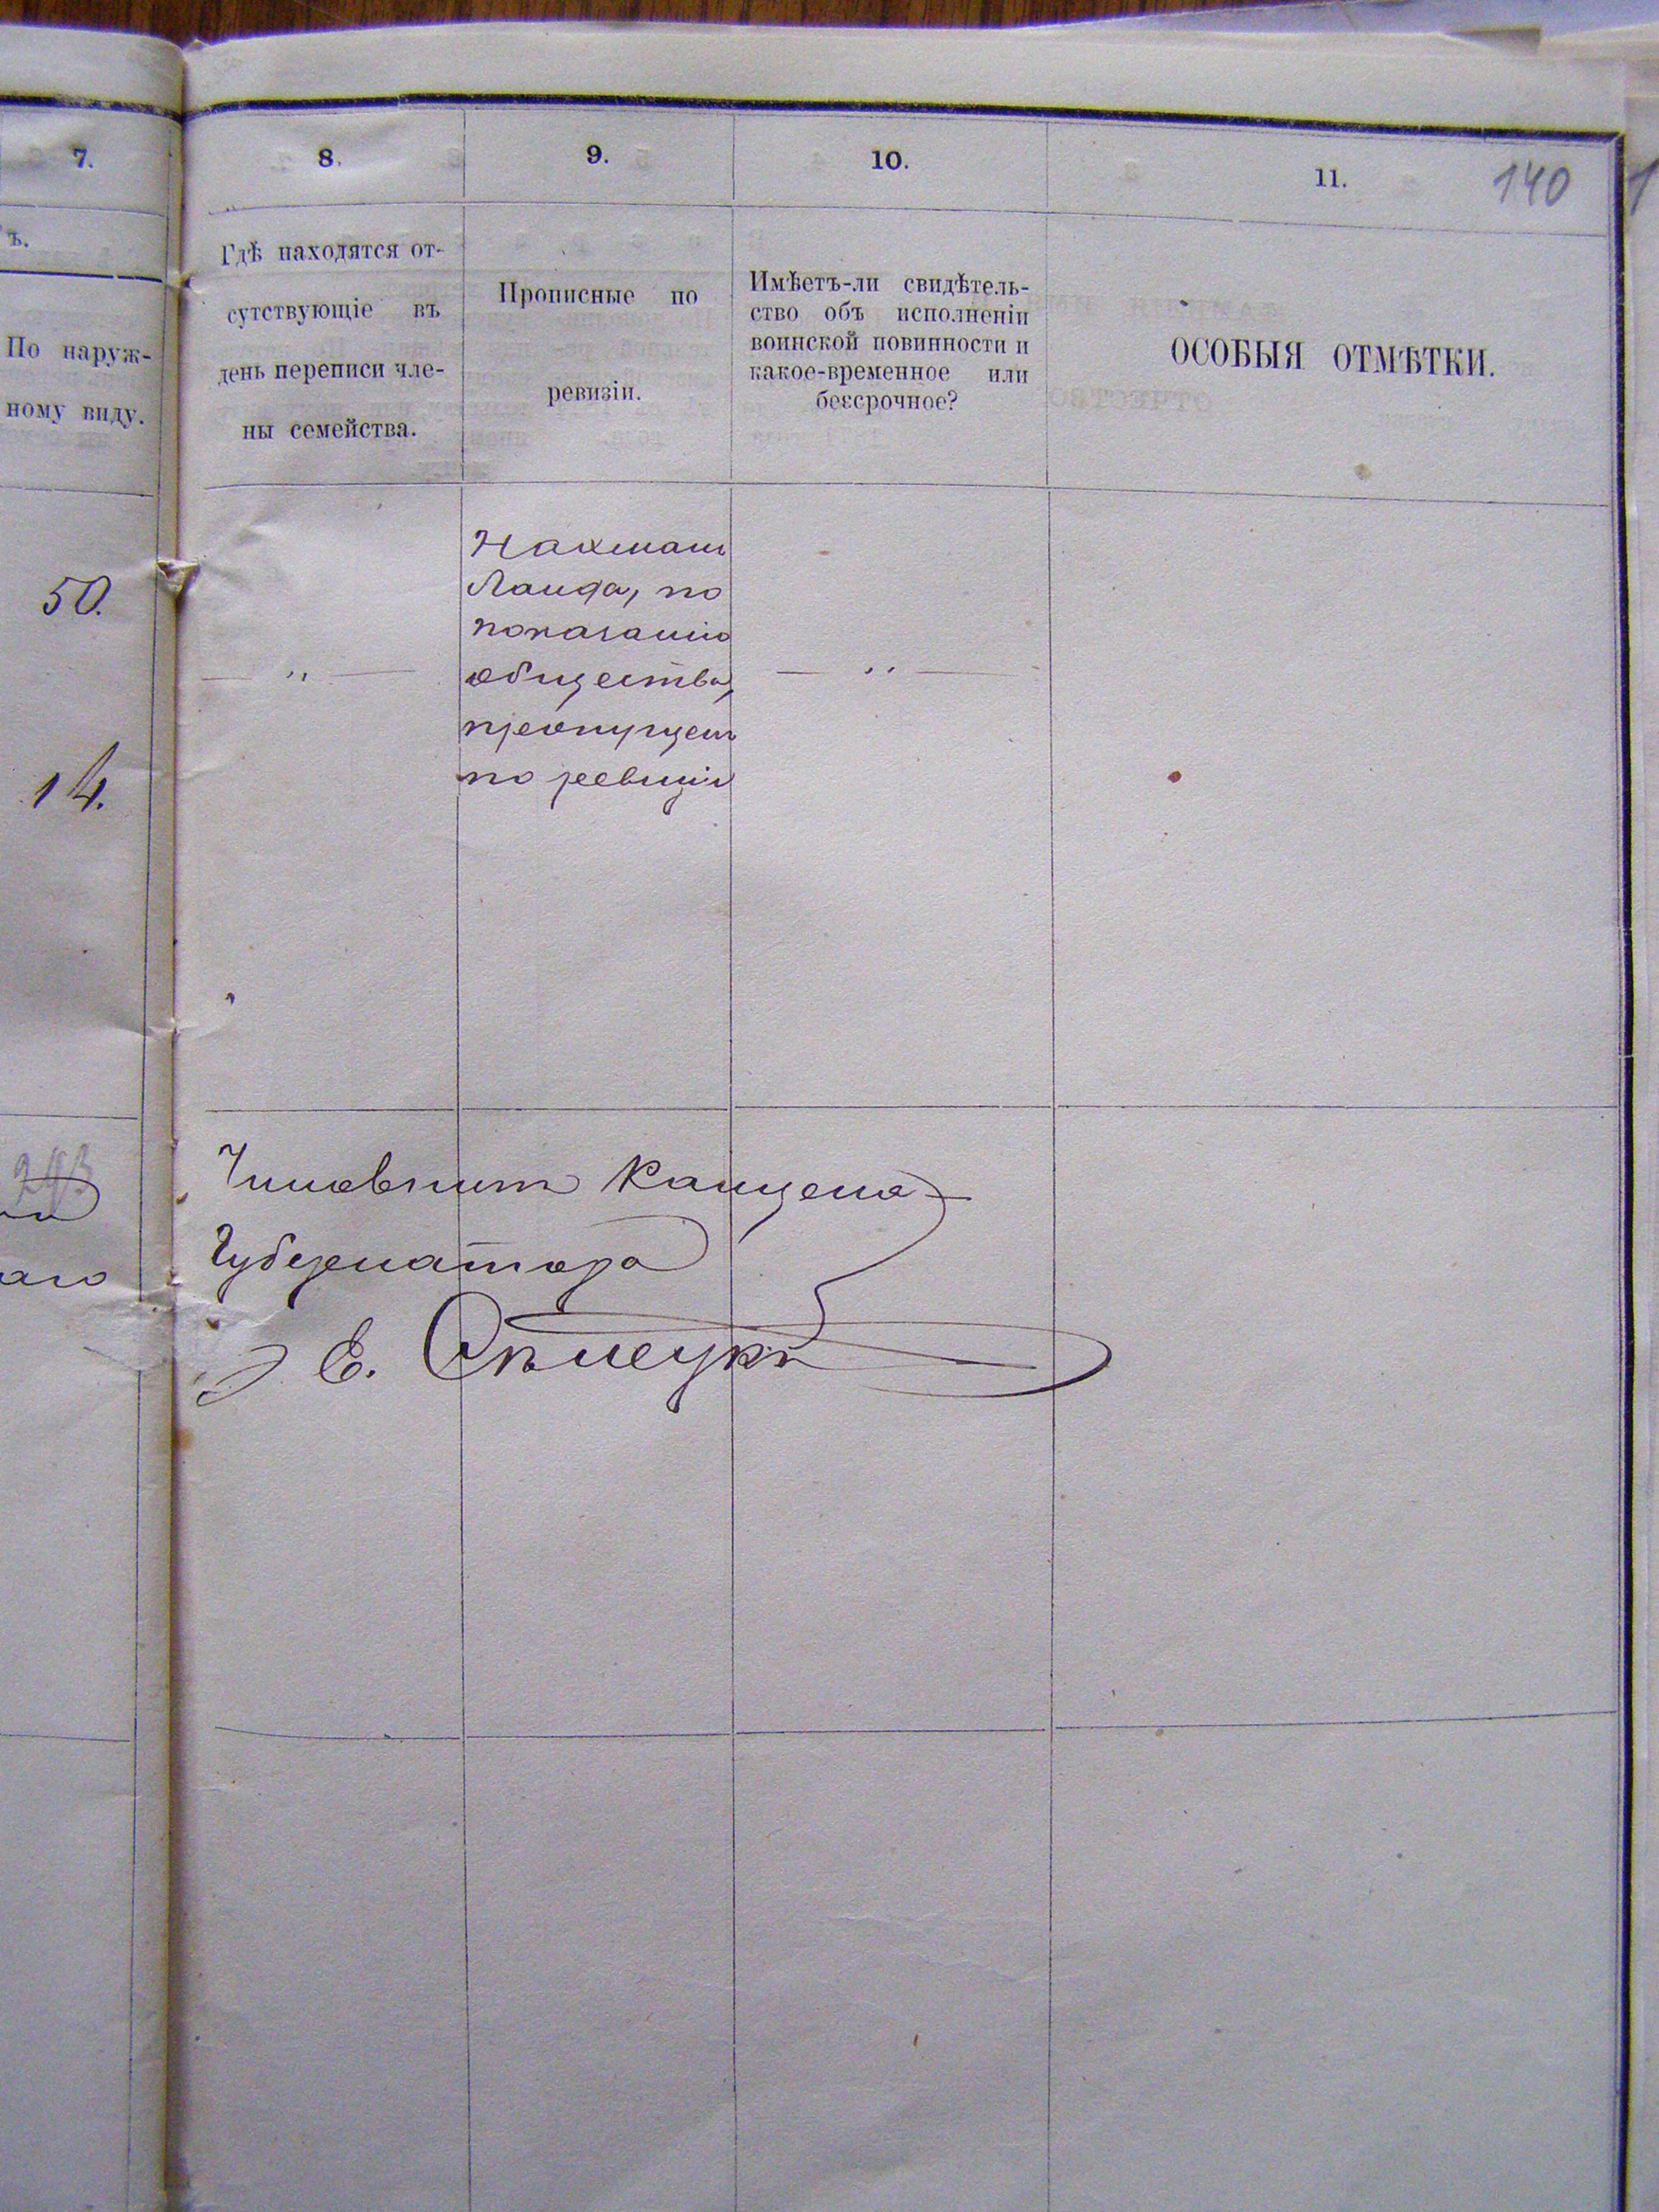 7.
8.
9.
10.
11.
140
ъ.
По наруж-
ному виду.
Гдѣ находятся от-
сутствующіе въ
день переписи чле-
ны семейства.
Прописные по
ревизіи.
Имѣетъ-ли свидѣтель-
ство объ исполненіи
воинской повинности и
какое-временное или
безсрочное?
ОСОБЫЯ ОТМѢТКИ.
50.
14.
Нахманъ
Ланда, по
показанію
общества,
пропущенъ
по ревизіи
— " —
— " —
аго
Чиновникъ Канцеля
Губернатора
Е.